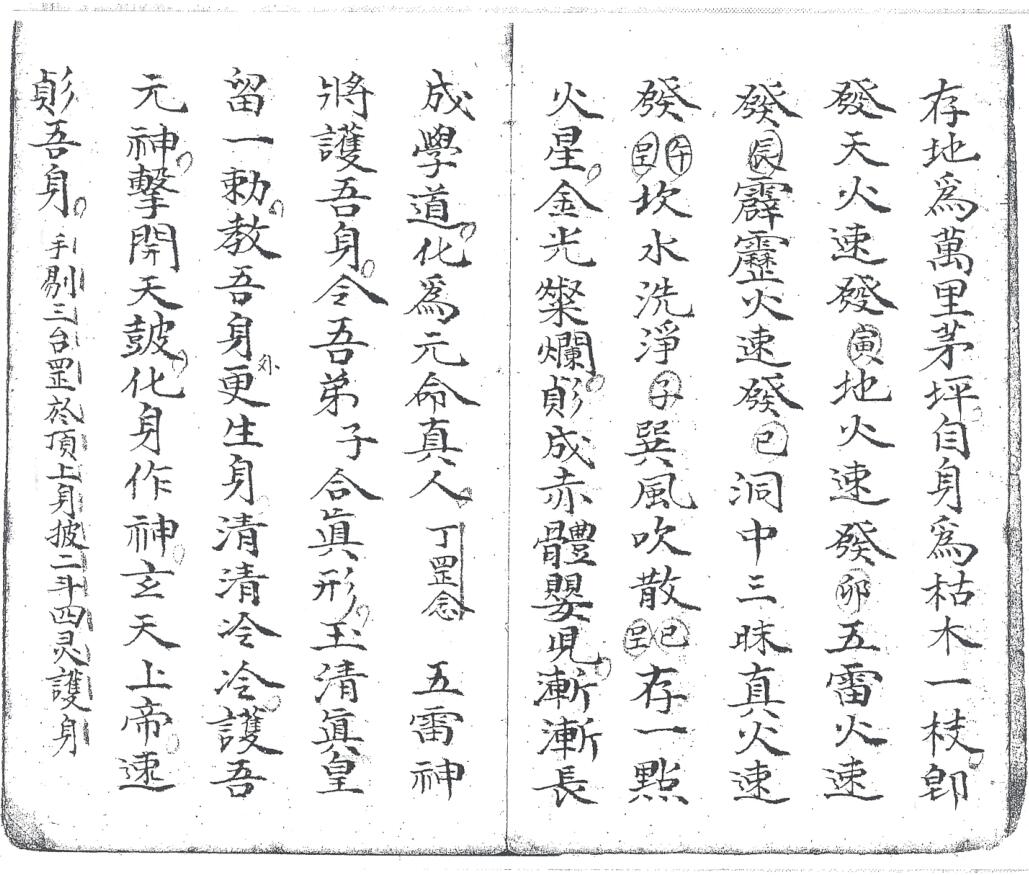 存地為萬里茅坪自身為枯木一枝卽
發天火速發寅地火速發卯五雷火速
發辰霹靂火速發巳洞中三昧真火速
發午罡坎水洗淨子巽風吹散巳罡存一點
火星金光燦爛㑯成赤體嬰児漸漸長
成學道化爲元命真人丁罡念 五雷神
將護吾身令吾弟子合眞形玉清眞皇
留一勅教吾身外更生身清清冷冷護吾
元神擊開天皷化身作神玄天上帝速
吾身手剔三台罡於頂上身披二斗四灵護身